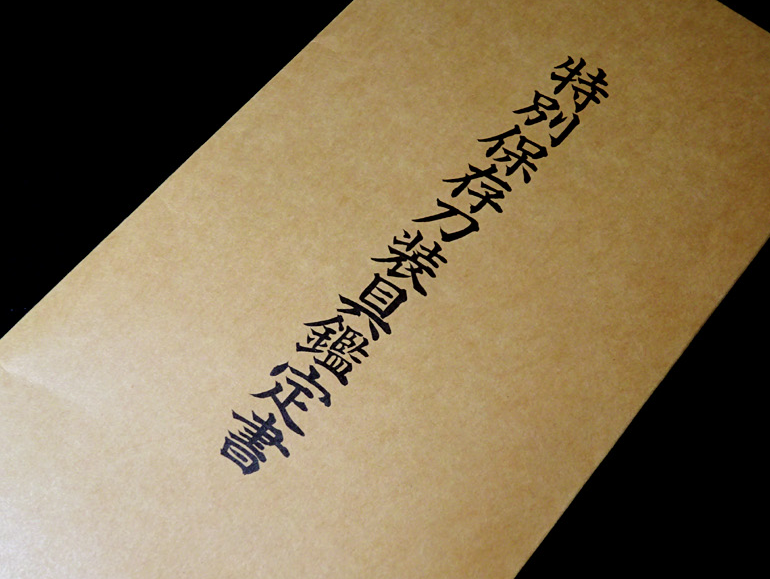 特別保存刀装具鑑定書